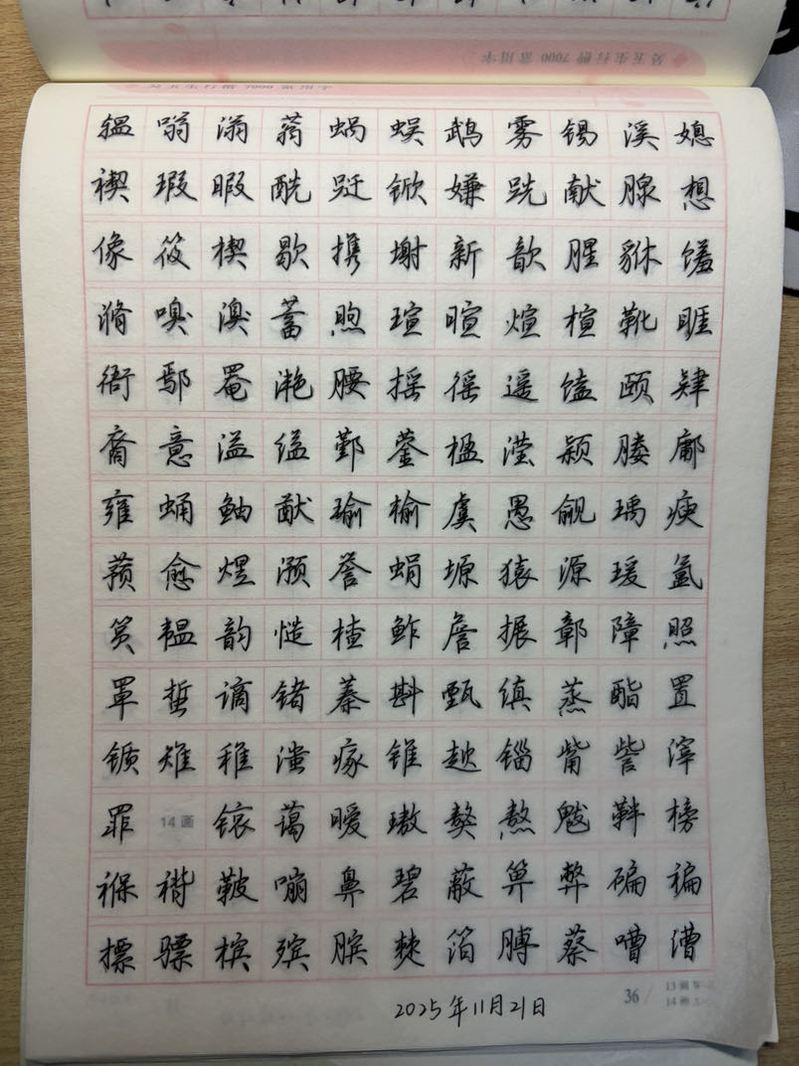 吴玉生行楷 7000 常用字
辒 嗡 滃 蓊 蜗 蜈 鹉 雾 锡 溪 媳
禊 瑕 暇 酰 跹 锨 嫌 跣 献 腺 想
像 筱 楔 歇 携 榭 新 歆 腥 貅 馐
滫 嗅 溴 蓄 煦 瑄 暄 煊 楦 靴 睚
衙 鄢 罨 滟 腰 摇 徭 遥 馌 颐 肄
裔 意 溢 缢 鄞 蓥 楹 滢 颍 媵 鄘
雍 蛹 鲉 猷 瑜 榆 虞 愚 觎 瑀 瘐
蓣 愈 煜 滪 誉 蜎 塬 猿 源 瑗 氲
筼 韫 韵 慥 楂 鲊 詹 搌 鄣 障 照
罩 蜇 谪 锗 蓁 斟 甄 缜 蒸 酯 置
锧 雉 稚 滍 瘃 锥 趑 锱 觜 訾 滓
罪 14 画 镓 蔼 暧 璈 獒 熬 魃 靽 榜
褓 褙 鞁 嘣 鼻 碧 蔽 箅 弊 碥 褊
摽 骠 槟 殡 膑 僰 箔 膊 蔡 嘈 漕
36
13 画
14 画
2025年11月21日